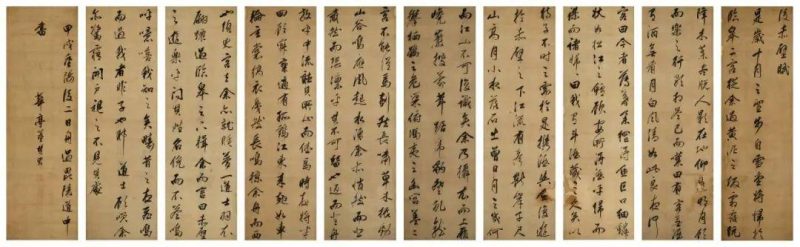 後赤壁賦
是歲十月之望步自雪堂將歸於
臨臯二客從余過黃泥之坂霜露既
降木葉盡脫人影在地仰見明月顧
而樂之行歌相答已而歎曰有客無酒
有酒無肴月白風清如此良夜何
客曰今者薄暮舉網得魚巨口細鱗
狀如松江之鱸顧安所得酒乎歸而
謀諸婦婦曰我有斗酒藏之久矣以
待子不時之需於是攜酒與魚復遊
於赤壁之下江流有聲斷岸千尺
山高月小水落石出曾日月之幾何
而江山不可復識矣余乃攝衣而上履
巉巖披蒙茸踞虎豹登虬龍攀
棲鶻之危巢俯馮夷之幽宮蓋二
客不能從焉劃然長嘯草木振動
山谷鳴應風起水涌余亦悄然而悲
肅然而恐凜乎其不可留也返而登舟
放乎中流聽其所止而休焉時夜將半
四顧寂寥適有孤鶴橫江東來翅如車
輪玄裳縞衣戛然長鳴掠余舟而西
也須臾客去余亦就睡夢一道士羽衣
翩躚過臨臯之下揖余而言曰赤壁
之遊樂乎問其姓名俛而不答嗚
呼噫嘻我知之矣疇昔之夜飛鳴
而過我者非子也耶道士顧笑余
亦驚寤開戶視之不見其處
甲戌後二日舟過毘陵道中
書 華亭董其昌